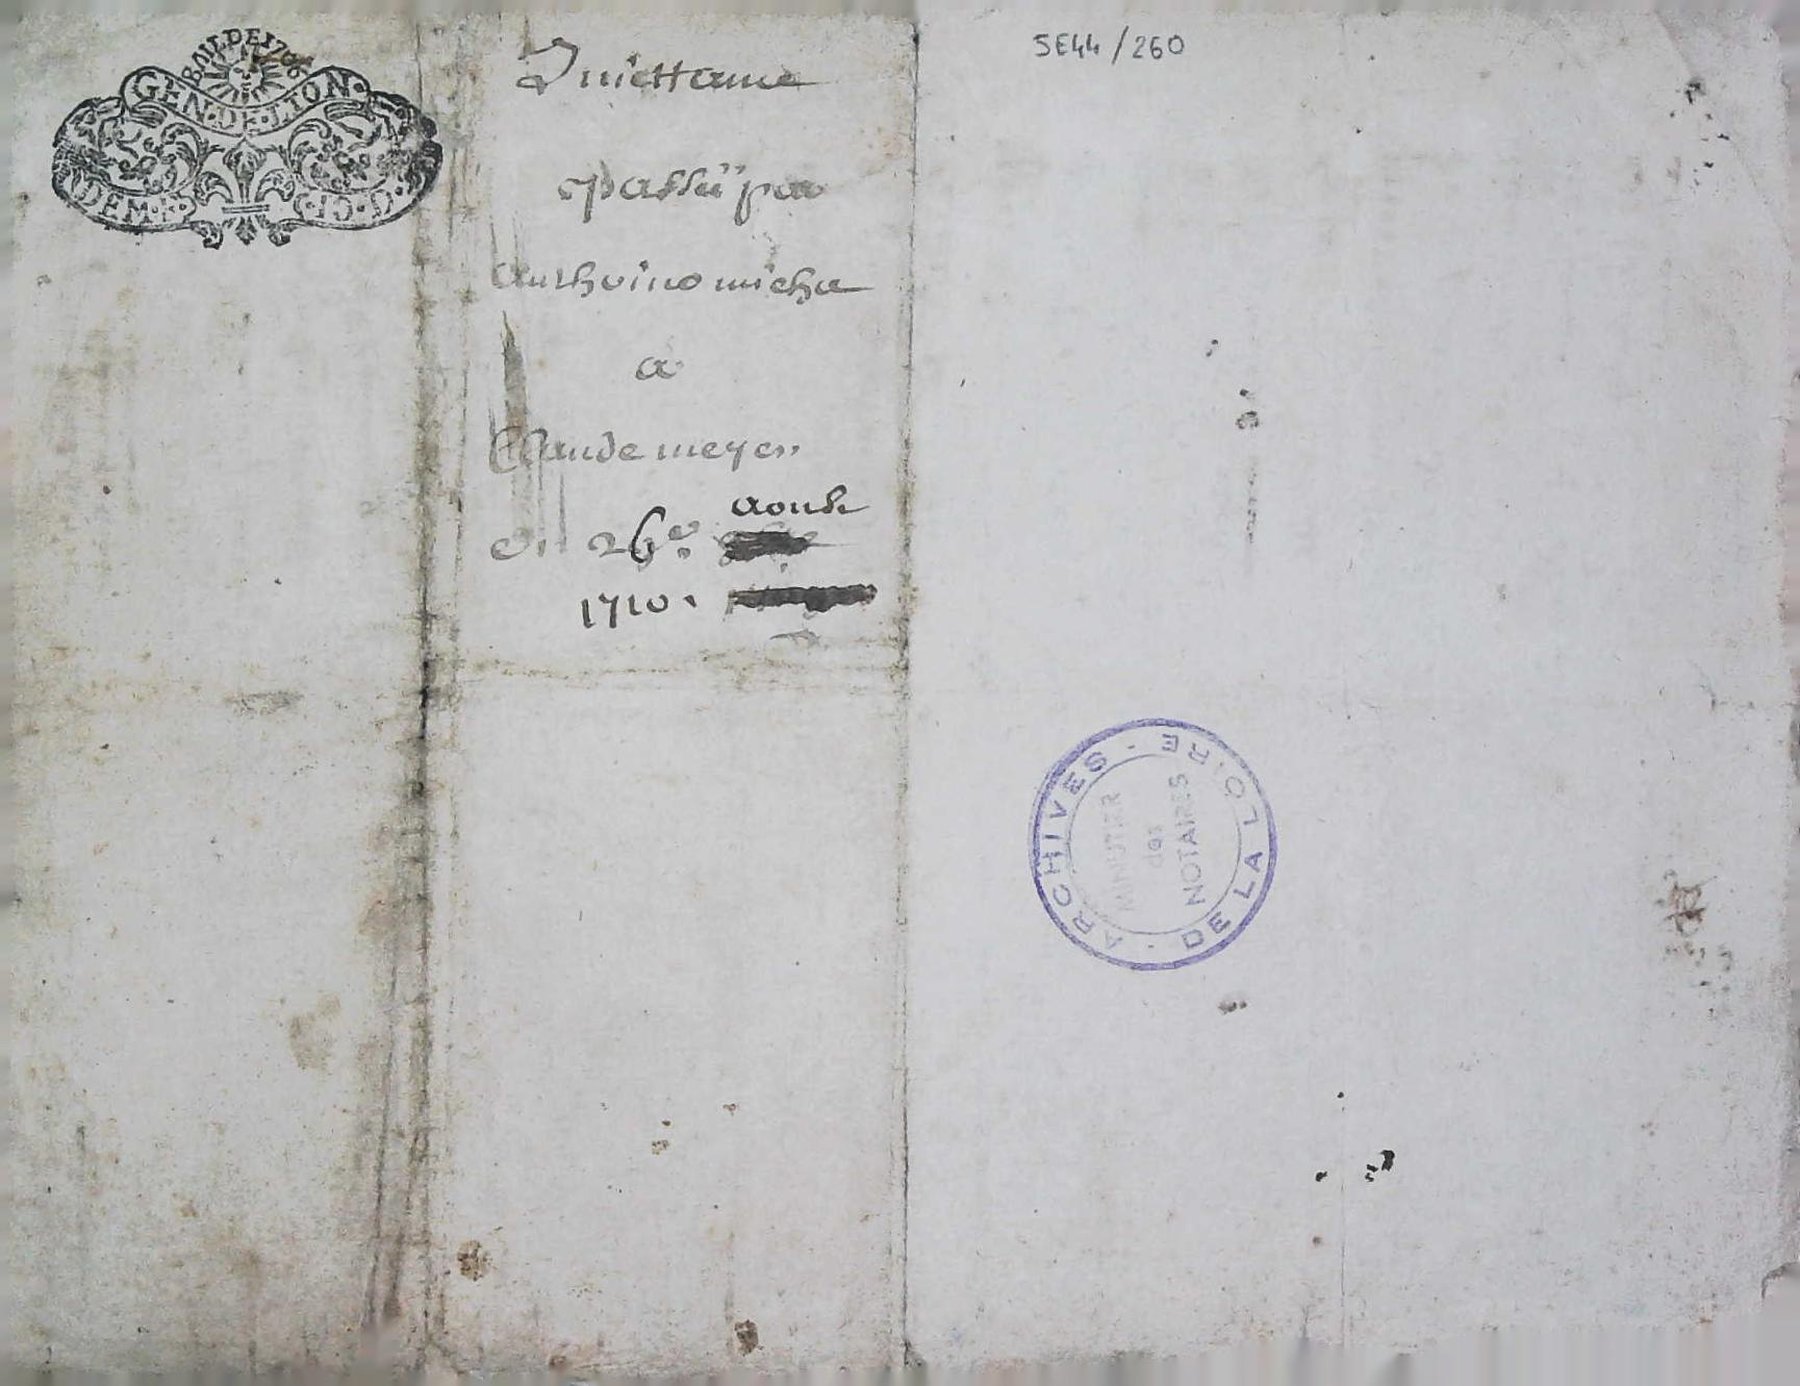 BAIL DE 1706
GEN · DE · LION ·
DEM · F ·
5E44/260
Quiettance
passé par
anthoine micha
a
Claude meyer
du 26e. aoust
1710.
ARCHIVES · DE LA LOIRE ·
MINUTIER
des
NOTAIRES